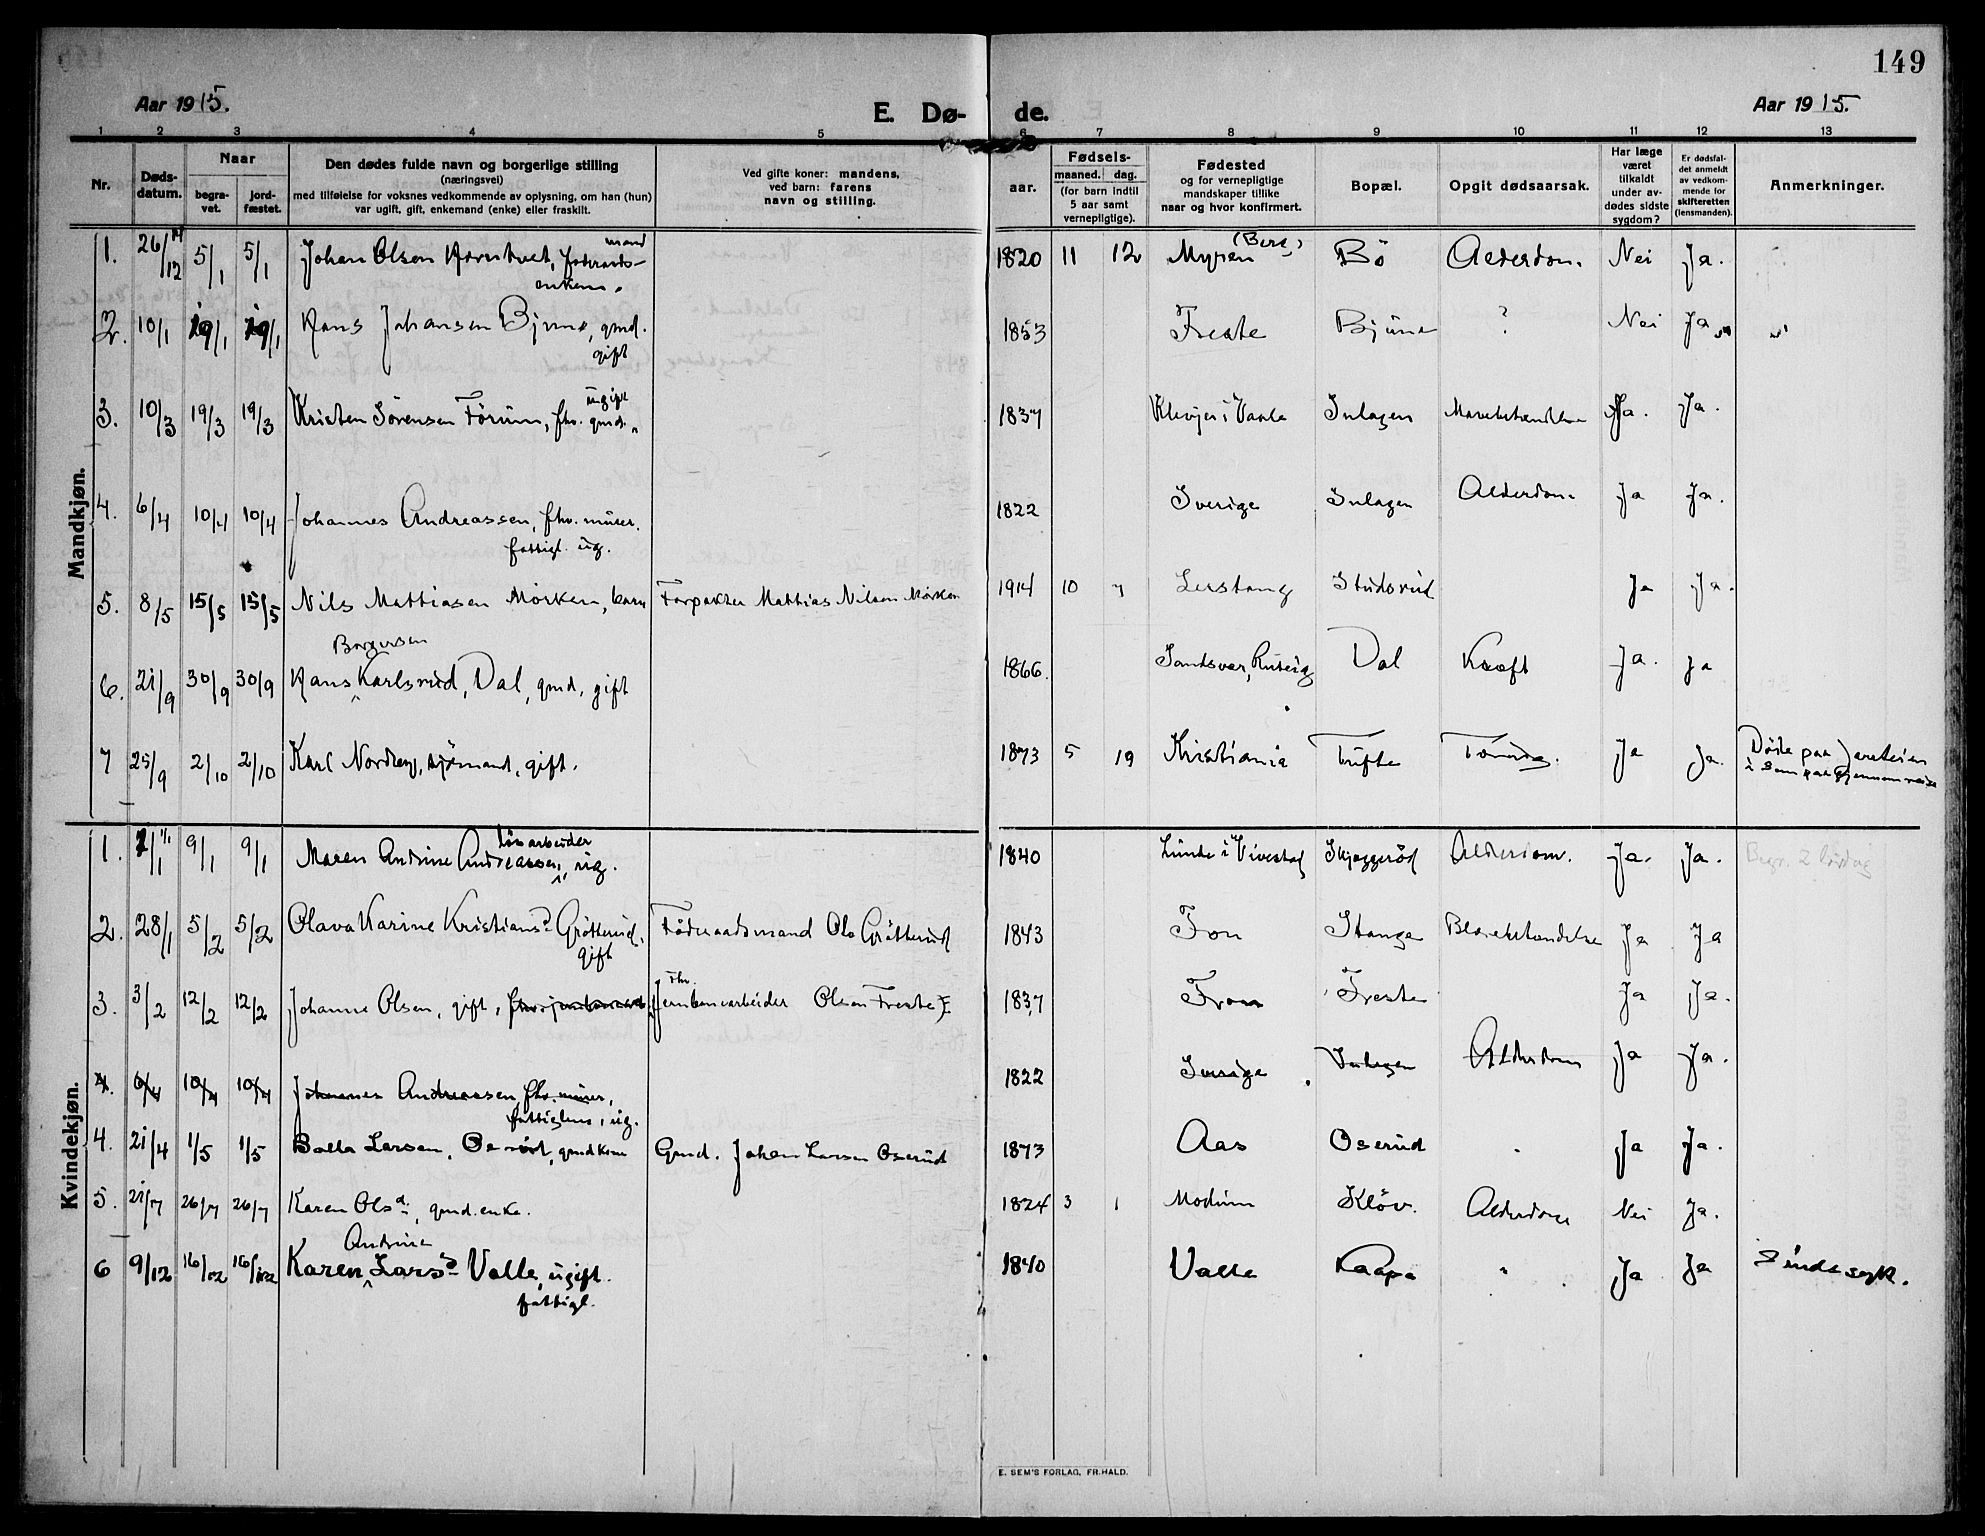 149
Aar 1915.
E. Dø-
de.
Aar 1915.
1 2 3 4 5 6 7 8 9 10 11 12 13
Nr.
Døds-datum.
Naar
begra-vet.
jord-fæstet.
Den dødes fulde navn og borgerlige stilling
(næringsvei)
med tilføielse for voksnes vedkommende av oplysning, om han (hun)
var ugift, gift, enkemand (enke) eller fraskilt.
Ved gifte koner: mandens,
ved barn: farens
navn og stilling.
Fødsels-
aar.
maaned. dag.
(for barn indtil
5 aar samt
vernepligtige).
Fødested
og for vernepligtige
mandskaper tillike
naar og hvor konfirmert.
Bopæl.
Opgit dødsaarsak.
Har læge
været
tilkaldt
under av-
dødes sidste
sygdom?
Er dødsfal-
det anmeldt
av vedkom-
mende for
skifteretten
(lensmanden).
Anmerkninger.
Mandkjøn.
1. 26/12 14 5/1 5/1 Johan Olsen føderaads- mand enkem. 1820 11 12 Myren (Berg) Bö Alderdom. Nei Ja.
2. 10/1 19/1 19/1 Hans Johansen Bjune, gmd. gift 1853 Freste Bjune ? Nei Ja
3. 10/3 19/3 19/3 Kristen Sörensen Förum, fhv. gmd. ugift 1837 Vaale Inlagen Ja. Ja.
4. 6/4 10/4 10/4 Johannes Andreassen, fhv. murer. fattigl. ug. 1822 Sverige Inlagen Alderdom. Ja Ja.
5. 8/5 15/5 15/5 Nils Mattiasen Mörken, barn Forpakter Mattias Nilsen Mörken 1914 10 7 Lerstang Studsrud Ja Ja.
6. 21/9 30/9 30/9 Hans Borgersen Karlsrud, Dal, gmd, gift 1866. Sandsvær, Dal Kræft Ja. Ja
7 25/9 2/10 2/10 Karl Nordberg, sjömand, gift. 1873 5 19 Kristiania Tufte Ja Ja. Döde paa
Kvindekjøn.
1. 1/1 9/1 9/1 Maren Andrine Andreassen, lösarbeider ug. 1840 Linde i Vivestad Skjæggeröd Alderdom. Ja. Ja.
2. 28/1 5/2 5/2 Olava Karine Kristiansd Gröttrud, gift Föderaadsmand Ole Gröttrud 1843 Fon Stange Ja Ja
3. 3/2 12/2 12/2 Johanne Olsen, gift, Fhv. Jernbanearbeider Olsen Freste 1837 Fron Freste Ja Ja.
4. 6/4 10/4 10/4 Johannes Andreassen, fhv. murer, fattiglem, ug. 1822 Sverige Inlagen Alderdom Ja Ja.
4. 21/4 1/5 1/5 Bolla Larsen, Oserud, gmdkone Gmd. Johan Larsen Oserud 1873 Aas Oserud Ja Ja.
5. 21/7 26/7 26/7 Karen Olsd, gmd.enke. 1824 3 1 Modum Klöv. Alderdom Nei Ja.
6 9/12 16/12 16/12 Karen Andrine Larsd Valle, ugift. fattigl. 1840 Valle Kaapa " Ja Ja Sindssyk.
E. SEM'S FORLAG, FR.HALD.